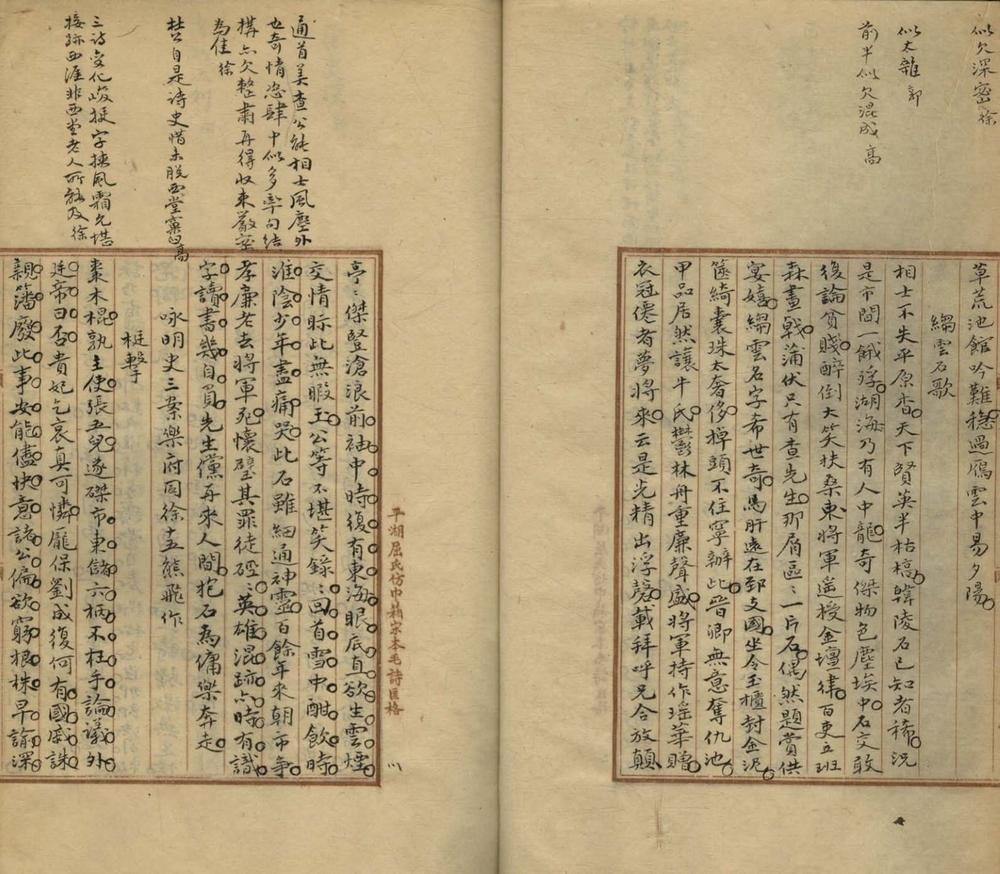 似欠深密 徐
似太雜 郭
前半似欠混成 高
草荒池館吟難穩過鴈雲中易夕陽
縐雲石歌
相士不失平原君天下賢英半枯槁韓陵石已知者稀況
是市間餓殍湖海乃有人中龍奇傑物色塵埃中石交敢
復論貧賤醉倒大笑扶桑東將軍遙授金壇律百吏立班
森畫戟蒲伏只有查先生那屑區區一片石偶然題賞供
宴嬉縐雲名字希世奇馬肝遠在郅支國坐令玉櫃封金泥
篋綺囊珠太奢侈掉頭不住寧辦此晉卿無意奪仇池
甲品居然讓牛氏鬱林舟重廉聲盛將軍持作瑤華贈
衣冠僊者夢將來云是光精出浮磬載拜呼兄合放顛
通首美查公能相士風塵外
也奇情恣肆中似多率句結
構亦欠整肅再得收束嚴密
為佳 徐
杜自是诗史惜未脫西堂窠臼 高
三诗变化峻挺字挾風霜允堪
接跡西涯非西堂老人所能及 徐
亭亭傑豎滄浪前袖中時復有東海眼底直欲生雲煙
交情眎此無暇王公等不堪笑錄錄回首雪中酣飲時
淮陰少年盡痛哭此石雖細通神靈百餘年來朝市爭
孝廉老去將軍死懷璧其罪徒硜硜英雄混跡亦時有識
字讀書幾自負先生儻再來人間抱石為傭樂奔走
詠明史三案樂府同徐士五熊飛作
梃擊
棗木棍孰主使張五兒遂磔市東儲六柄不枉手論議外
廷帝曰否貴妃乞哀真可憐龐保劉成復何有國戚誅
親籓廢此事安能儘快意諸公偏欲窮根株早諭深
平湖屈氏仿巾箱宋本毛詩匡格